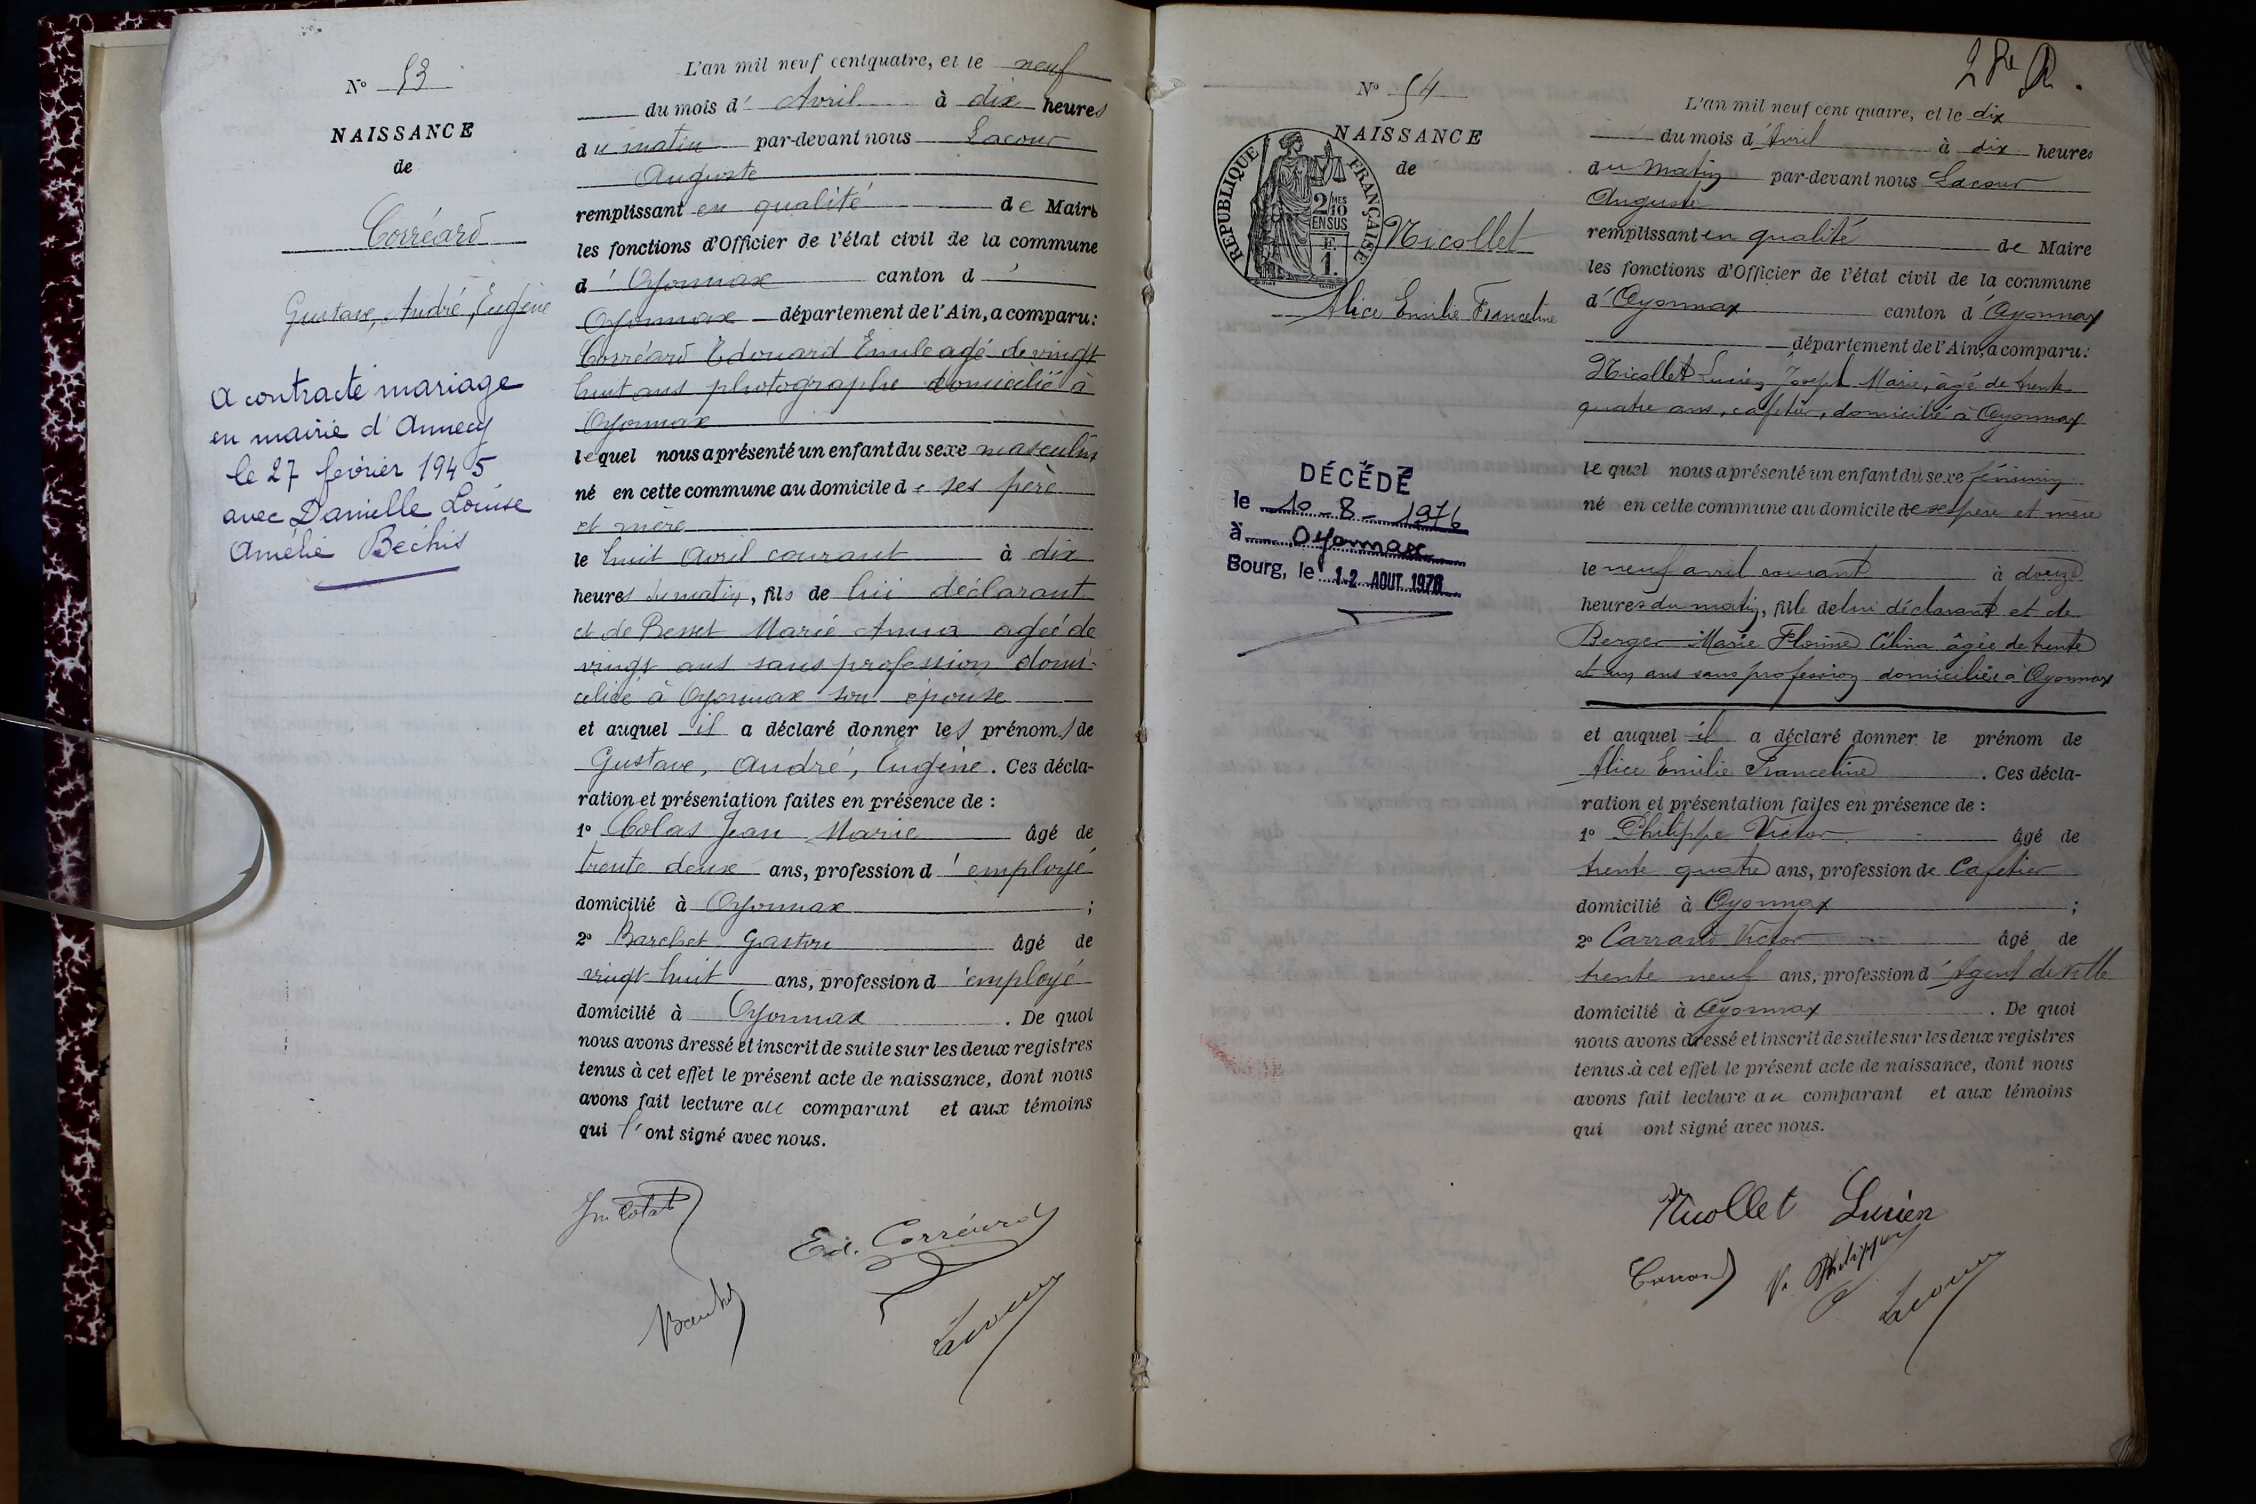 N° 53
NAISSANCE
de
Corréard
Gustave, André, Eugène
a contracté mariage
en mairie d'Annecy
le 27 février 1945
avec Danielle Louise
Amélie Béchis
L'an mil neuf cent quatre, et le neuf
du mois d' Avril à dix heures
du matin par-devant nous Lacour
Auguste
remplissant en qualité de Maire
les fonctions d'Officier de l'état civil de la commune
d' Oyonnax canton d'
Oyonnax département de l'Ain, a comparu:
Corréard Edouard Emile agé de vingt
huit ans photographe domicilié à
Oyonnax
lequel nous a présenté un enfant du sexe masculin
né en cette commune au domicile de ses père
et mère
le huit Avril courant à dix
heures du matin, fils de lui déclarant
et de Besset Marie Anna agée de
vingt ans sans profession domi-
ciliée à Oyonnax son épouse
et auquel il a déclaré donner les prénoms de
Gustave, André, Eugène. Ces décla-
ration et présentation faites en présence de :
1° Colas Jean Marie âgé de
trente deux ans, profession d'employé
domicilié à Oyonnax ;
2° Barchet Gaston âgé de
vingt huit ans, profession d'employé
domicilié à Oyonnax. De quoi
nous avons dressé et inscrit de suite sur les deux registres
tenus à cet effet le présent acte de naissance, dont nous
avons fait lecture au comparant et aux témoins
qui l'ont signé avec nous.
Jm Colas
Ed. Corréard
Lacour
N° 54
NAISSANCE
de
RÉPUBLIQUE FRANÇAISE
2/10 MES
EN SUS
F.
1.
Nicollet
Alice Emilie Franceline
DÉCÉDÉ
le 10-8-1976
à Oyonnax
Bourg, le 12 AOUT 1976
L'an mil neuf cent quatre, et le dix
du mois d'Avril à dix heures
du Matin par-devant nous Lacour
Auguste
remplissant en qualité de Maire
les fonctions d'Officier de l'état civil de la commune
d'Oyonnax canton d'Oyonnax
département de l'Ain, a comparu:
Nicollet Lucien Joseph Marie, âgé de trente
quatre ans, cafetier, domicilié à Oyonnax
lequel nous a présenté un enfant du sexe féminin
né en cette commune au domicile de ses père et mère
le neuf avril courant à douze
heures du matin, fille de lui déclarant et de
Berger Marie Florine Célina âgée de trente
et un ans sans profession domiciliée à Oyonnax
et auquel il a déclaré donner le prénom de
Alice Emilie Franceline. Ces décla-
ration et présentation faites en présence de :
1° Philippe Victor âgé de
trente quatre ans, profession de Cafetier
domicilié à Oyonnax ;
2° Carrard Victor âgé de
trente neuf ans, profession d'Agent de Ville
domicilié à Oyonnax. De quoi
nous avons dressé et inscrit de suite sur les deux registres
tenus à cet effet le présent acte de naissance, dont nous
avons fait lecture au comparant et aux témoins
qui ont signé avec nous.
Nicollet Lucien
V. Philippe
Lacour